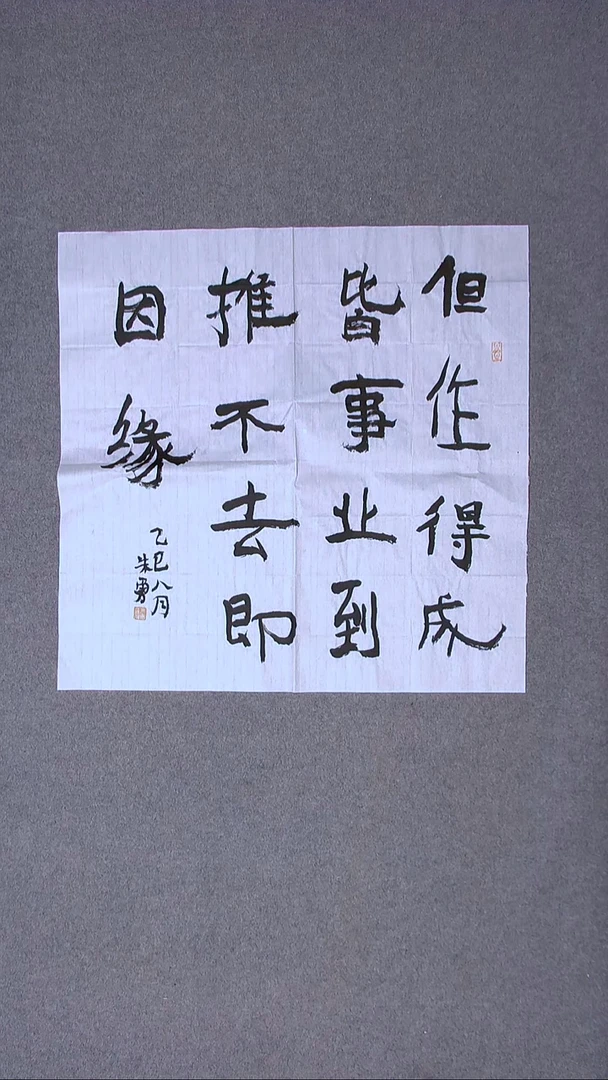 但作得成
皆事业到
推不去即
因缘
乙巳八月
朱勇